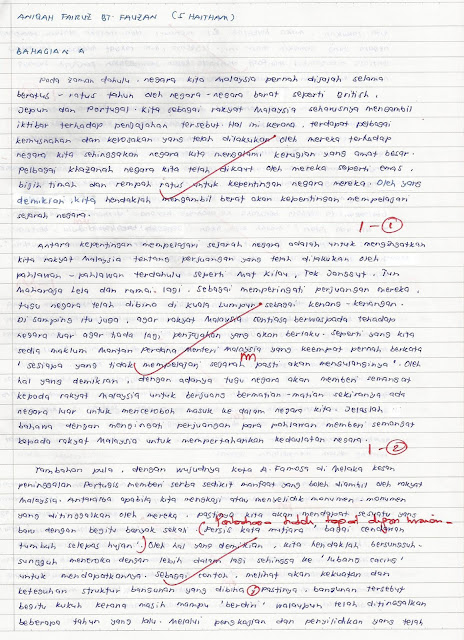 ANIQAH FAIRUZ BT. FAUZAN (5 HAITHAM)
BAHAGIAN A
Pada zaman dahulu, negara kita Malaysia pernah dijajah selama
beratus-ratus tahun oleh negara-negara barat seperti British,
Jepun dan Portugal. Kita sebagai rakyat Malaysia seharusnya mengambil
iktibar terhadap penjajahan tersebut. Hal ini kerana, terdapat pelbagai
kemusnahan dan kerosakan yang telah dilakukan oleh mereka terhadap
negara kita sehinggakan negara kita mengalami kerugian yang amat besar.
Pelbagai khazanah negara kita telah dikaut oleh mereka seperti emas,
bijih timah dan rempah ratus untuk kepentingan negara mereka. Oleh yang
demikian, kita hendaklah mengambil berat akan kepentingan mempelajari
sejarah negara.
1 - 1
Antara kepentingan mempelajari sejarah negara adalah untuk mengingatkan
kita rakyat Malaysia tentang perjuangan yang telah dilakukan oleh
pahlawan-pahlawan terdahulu seperti Mat Kilau, Tok Janggut, Tun
Maharaja Lela dan ramai lagi. Sebagai memperingati perjuangan mereka,
tugu negara telah dibina di Kuala Lumpur sebagai kenang-kenangan.
Di samping itu juga, agar rakyat Malaysia sentiasa berwaspada terhadap
negara luar agar tiada lagi penjajahan yang akan berlaku. Seperti yang kita
sedia maklum Mantan Perdana Menteri Malaysia yang keempat pernah berkata
m
' sesiapa yang tidak mempelajari sejarah pasti akan mengulanginya '. Oleh
hal yang demikian, dengan adanya tugu negara akan memberi semangat
kepada rakyat Malaysia untuk berjuang bermatian-matian sekiranya ada
negara luar untuk menceroboh masuk ke dalam negara kita. Jelaslah
bahawa dengan mengingati perjuangan para pahlawan memberi semangat
kepada rakyat Malaysia untuk mempertahankan kedaulatan negara.
1 - 2
Tambahan pula, dengan wujudnya Kota A-Famosa di Melaka kesan
peninggalan Portugis memberi serba sedikit manfaat yang boleh diambil oleh rakyat
Malaysia. Antaranya apabila kita mengkaji atau menyelidik monumen-monumen
yang ditinggalkan oleh mereka, pastinya kita akan mendapat sesuatu yang
baru dengan begitu banyak sekali (Persis kata mutiara, bagai cendawan
tumbuh selepas hujan.) Oleh hal yang demikian, kita hendaklah bersungguh-
sungguh meneroka dengan lebih dalam lagi sehingga ke 'lubang cacing'
untuk mendapatkannya. Sebagai contoh, melihat akan kekuatan dan
keteguhan struktur bangunan yang dibina, Pastinya, bangunan tersebut
begitu kukuh kerana masih mampu 'berdiri' walaupun telah ditinggalkan
beberapa tahun yang lalu. Melalui pengkajian dan penyelidikan yang telah